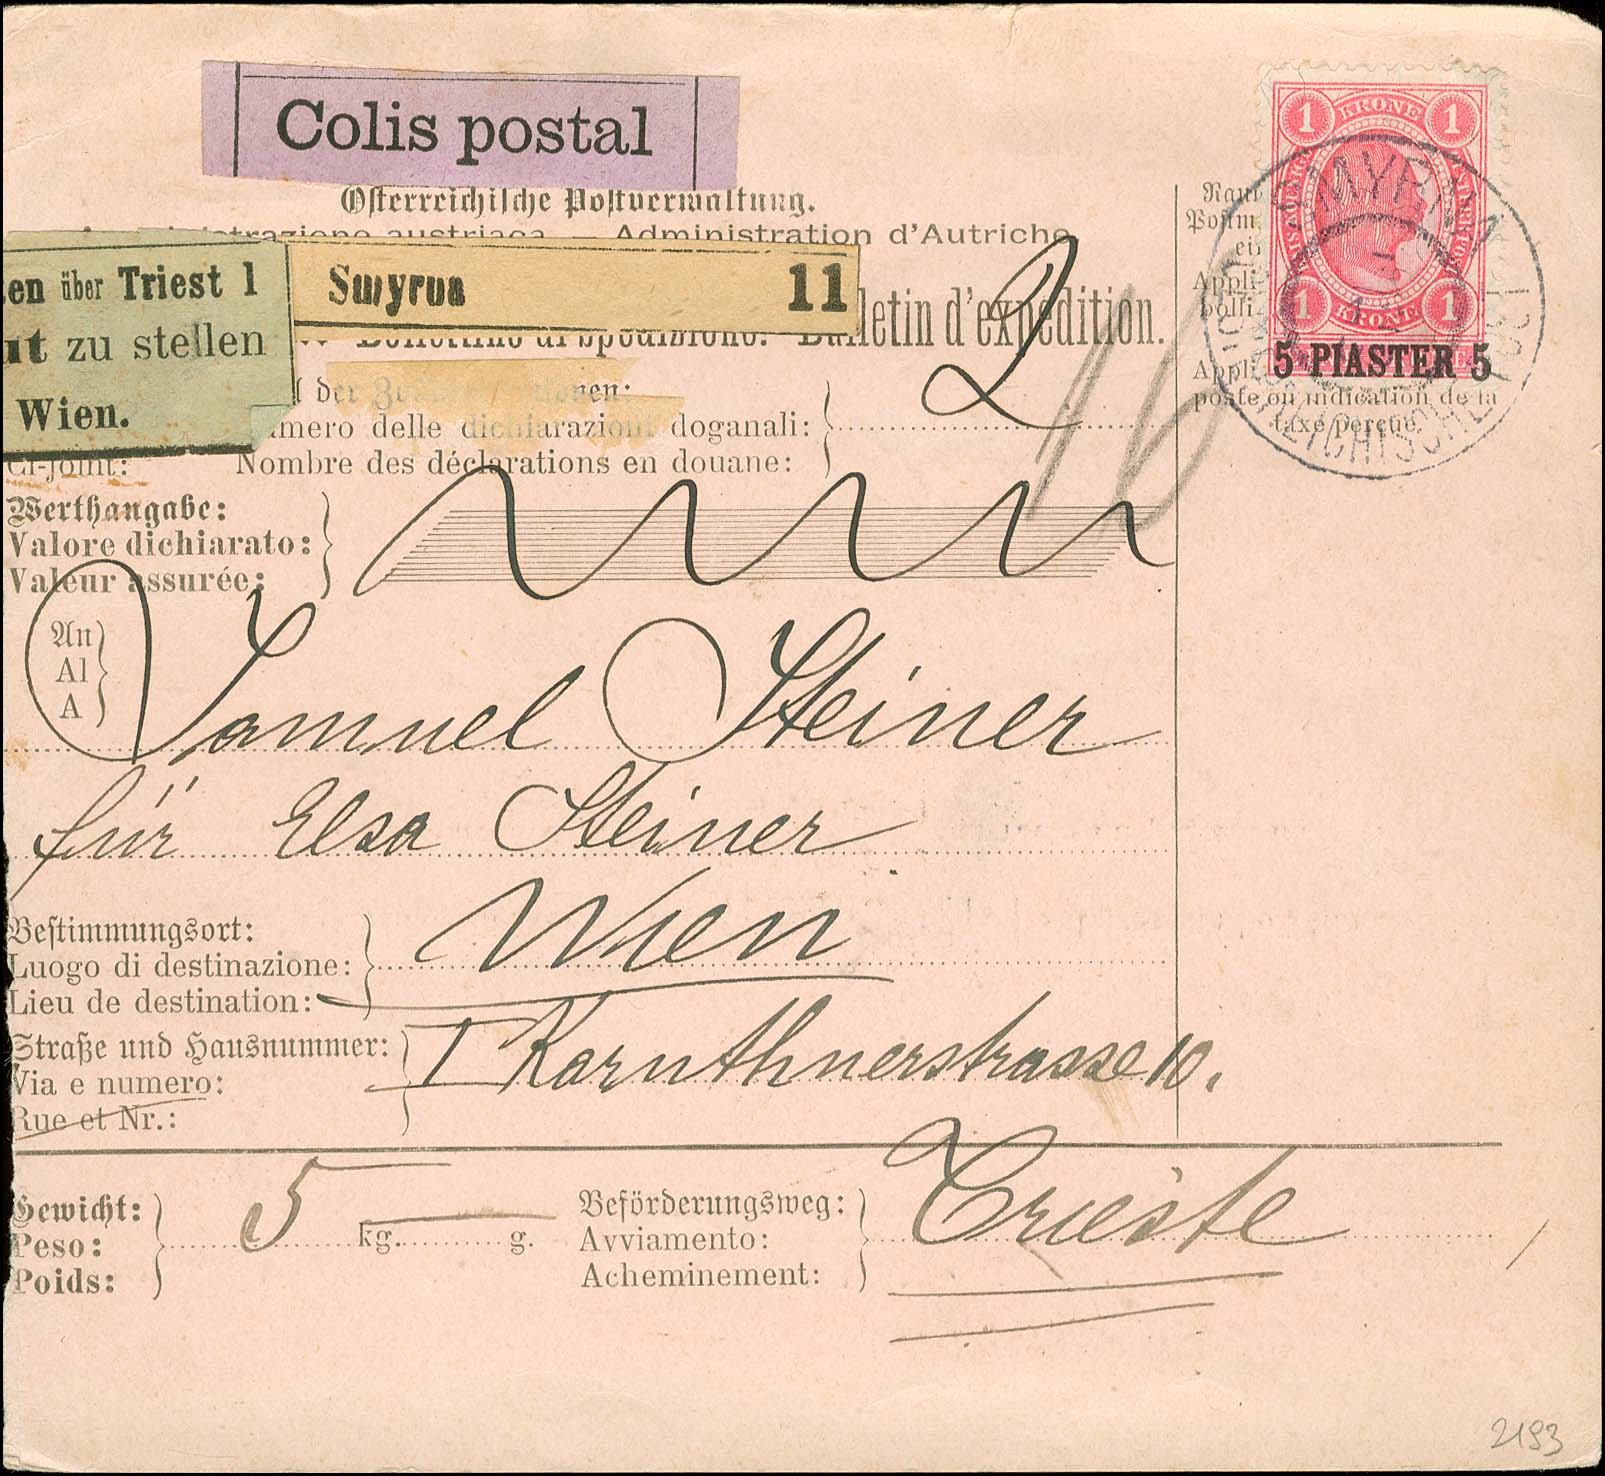 Colis postal
Österreichische Postverwaltung.
austriaca — Administration d'Autriche
über Triest 1
zu stellen
Wien.
Smyrna 11
Bollettino di spedizione. Bulletin d'expédition.
2
16
der
delle dichiarazioni doganali:
Ci-joint: Nombre des déclarations en douane:
Werthangabe:
Valore dichiarato:
Valeur assurée:
An
Al
A
Samuel Steiner
für Elsa Steiner
Bestimmungsort:
Luogo di destinazione:
Lieu de destination:
Wien
Straße und Hausnummer:
Via e numero:
Rue et Nr.:
I Karnthnerstrasse 10.
Gewicht:
Peso:
Poids:
5 kg. g.
Beförderungsweg:
Avviamento:
Acheminement:
Trieste
1 KRONE 1
1 KRONE 1
5 PIASTER 5
SMYRNA
poste ou indication de la
taxe perçue.
2193